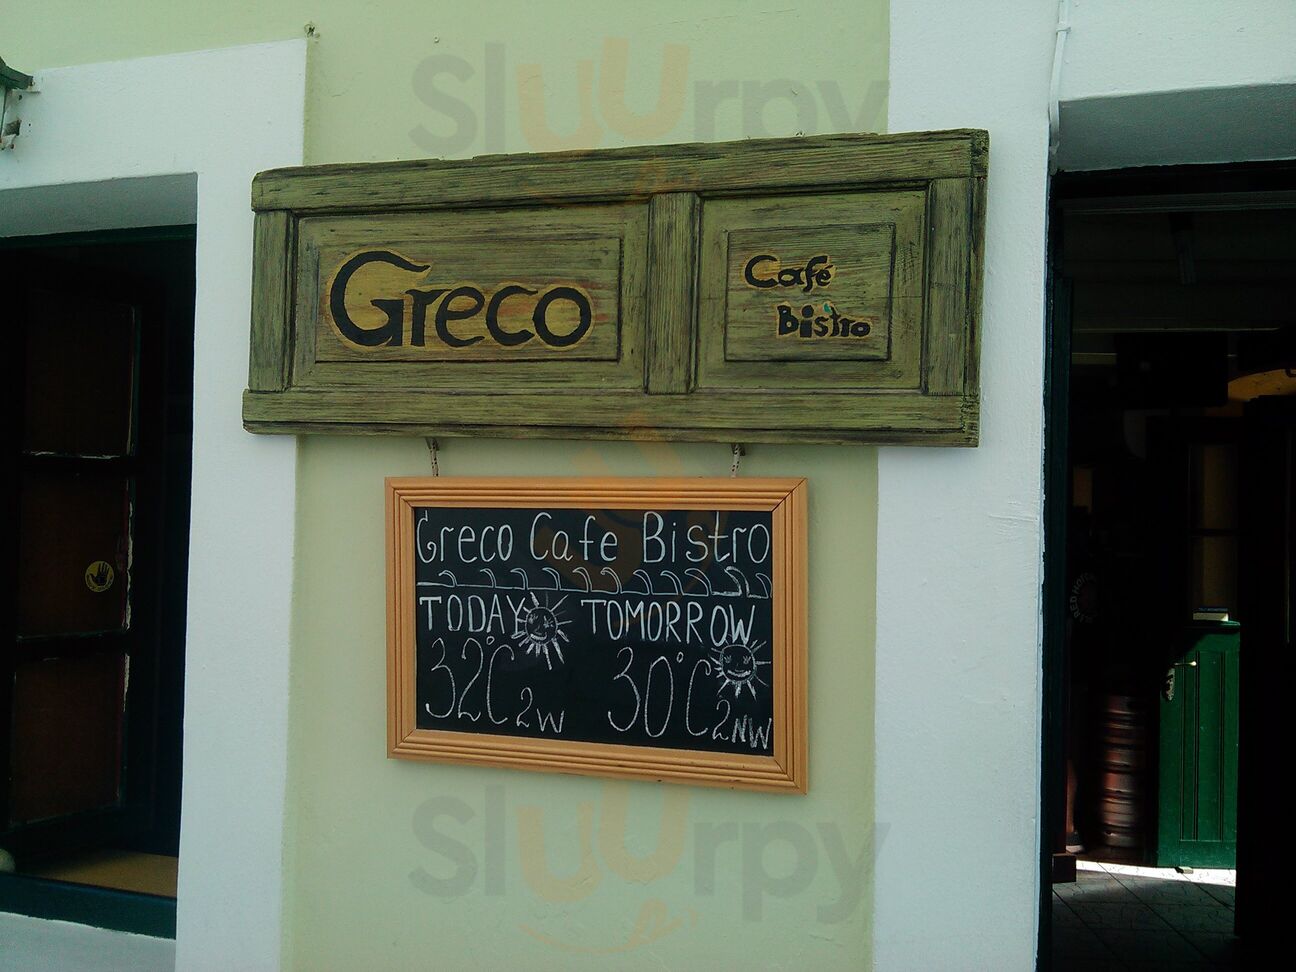 Sluurpy
Greco
Café
Bistro
Greco Cafe Bistro
TODAY TOMORROW
32°C 2W 30°C 2NW
Sluurpy